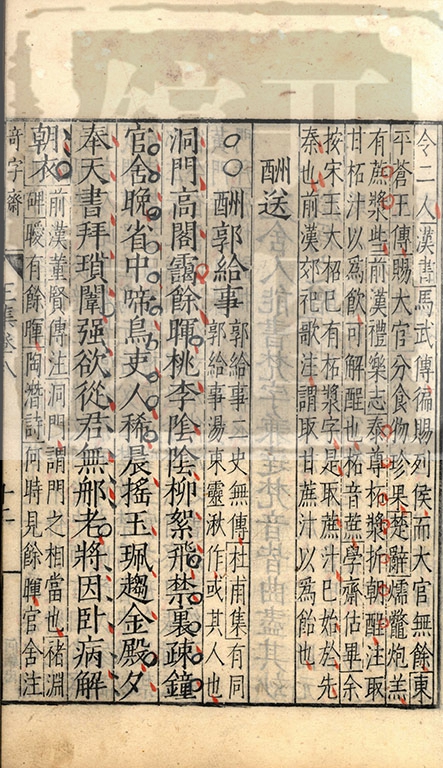 令二人漢書馬武傳徧賜列侯而大官無餘東
平蒼王傳賜大官分食物珍果楚辭濡鼈炮羔
有蔗漿些前漢禮樂志泰尊柘漿折朝酲注取
甘柘汁以爲飲可解酲也柘音蔗學齋佔畢余
按宋玉大招已有柘漿字是取蔗汁已始於先
秦也前漢郊祀歌注謂取甘蔗汁以爲飴也
酬送
酬郭給事郭給事二史無傳杜甫集有同郭給事湯東靈湫作或其人也
洞門高閣靄餘暉桃李陰陰柳絮飛禁裏疎鐘
官舍晚省中啼鳥吏人稀晨搖玉珮趨金殿夕
奉天書拜瑣闈强欲從君無那老將因卧病解
朝衣前漢董賢傳注洞門謂門之相當也褚淵碑曖有餘暉陶潛詩何時見餘暉官舍注
奇字齋
王集卷八